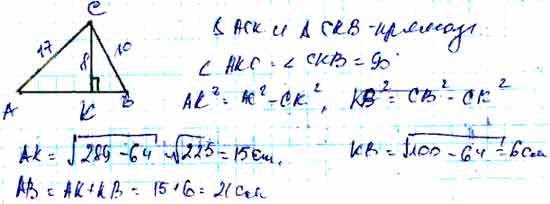 C
17
8
10
A
K
B
Δ ACK и Δ CKB - прямоуг.
∠ AKC = ∠ CKB = 90°
AK² = AC² - CK², KB² = CB² - CK²
AK = √289 - 64 = √225 = 15 см.
KB = √100 - 64 = 6 см
AB = AK + KB = 15 + 6 = 21 см